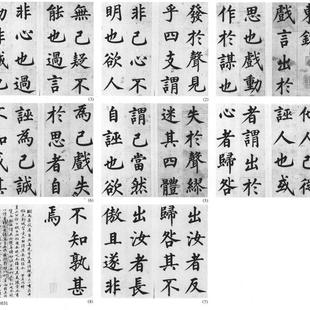 東銘
戲言出於
思也戲動
作於謀也
發於聲見
乎四支謂
非己心不
明也欲人
無己疑不
能也過言
非心也過
失於聲繆
迷其四體
謂己當然
自誣也欲
誣人也或
者謂出於
心者歸咎
為己戲失
於思者自
誣為己誠
不知戒其
出汝者反
歸咎其不
出汝者長
傲且遂非
不知孰甚
焉
(3)
(2)
(6)
(5)
(8)
(7)